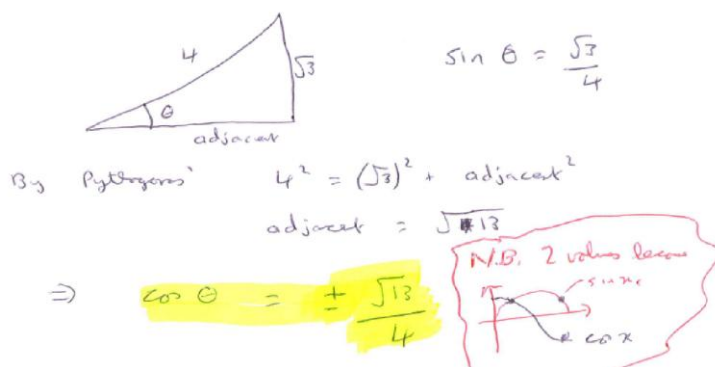 4
√3
θ
adjacent
sin θ = √3/4
By Pythagoras' 4² = (√3)² + adjacent²
adjacent = √13
N.B. 2 values because
sin x
cos x
⇒ cos θ = ± √13/4